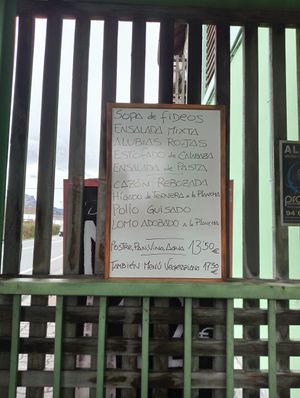 SOPA de FIDEOS
ENSALADA MIXTA
ALUBIAS ROJAS
ESTOFADO de CALABAZA
ENSALADA de PASTA
CAZÓN REBOZADA
HÍGADO de TERNERA a la PLANCHA
POLLO GUISADO
LOMO ADOBADO a la PLANCHA
POSTRE, PAN, VINO, AGUA 13,50 €
TAMBIÉN MENÚ VEGETARIANO 17,50 €
AL
pro
94